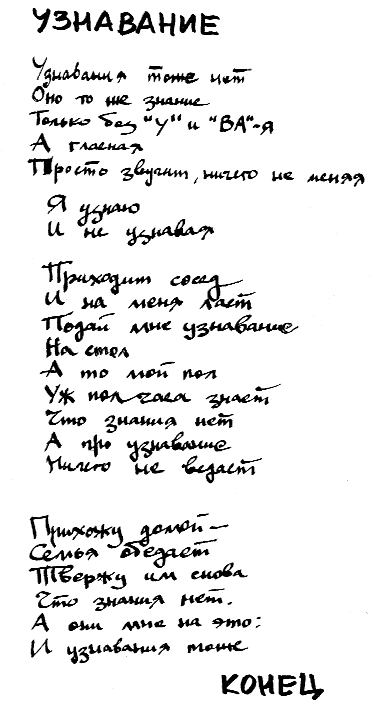 УЗНАВАНИЕ
Узнавания тоже нет
Оно то же знание
Только без "У" и "ВА"-я
А гласная
Просто звучит, ничего не меняя
Я узнаю
И не узнавая
Приходит сосед
И на меня лает
Подай мне узнавание
На стол
А то мой пол
Уж пол часа знает
Что знания нет
А про узнавание
Ничего не ведает
Прихожу домой—
Семья обедает
Твержу им снова
Что знания нет.
А они мне на это:
И узнавания тоже
КОНЕЦ